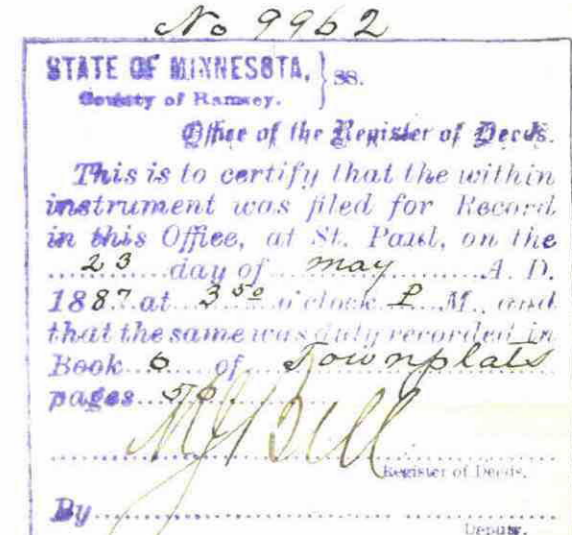 No 9962
STATE OF MINNESOTA, } SS.
County of Ramsey.
Office of the Register of Deeds.
This is to certify that the within
instrument was filed for Record
in this Office, at St. Paul, on the
23 day of may A. D.
1887 at 3 50 o'clock P M., and
that the same was duly recorded in
Book 6 of Townplats
pages
Bell
Register of Deeds.
By
Deputy.